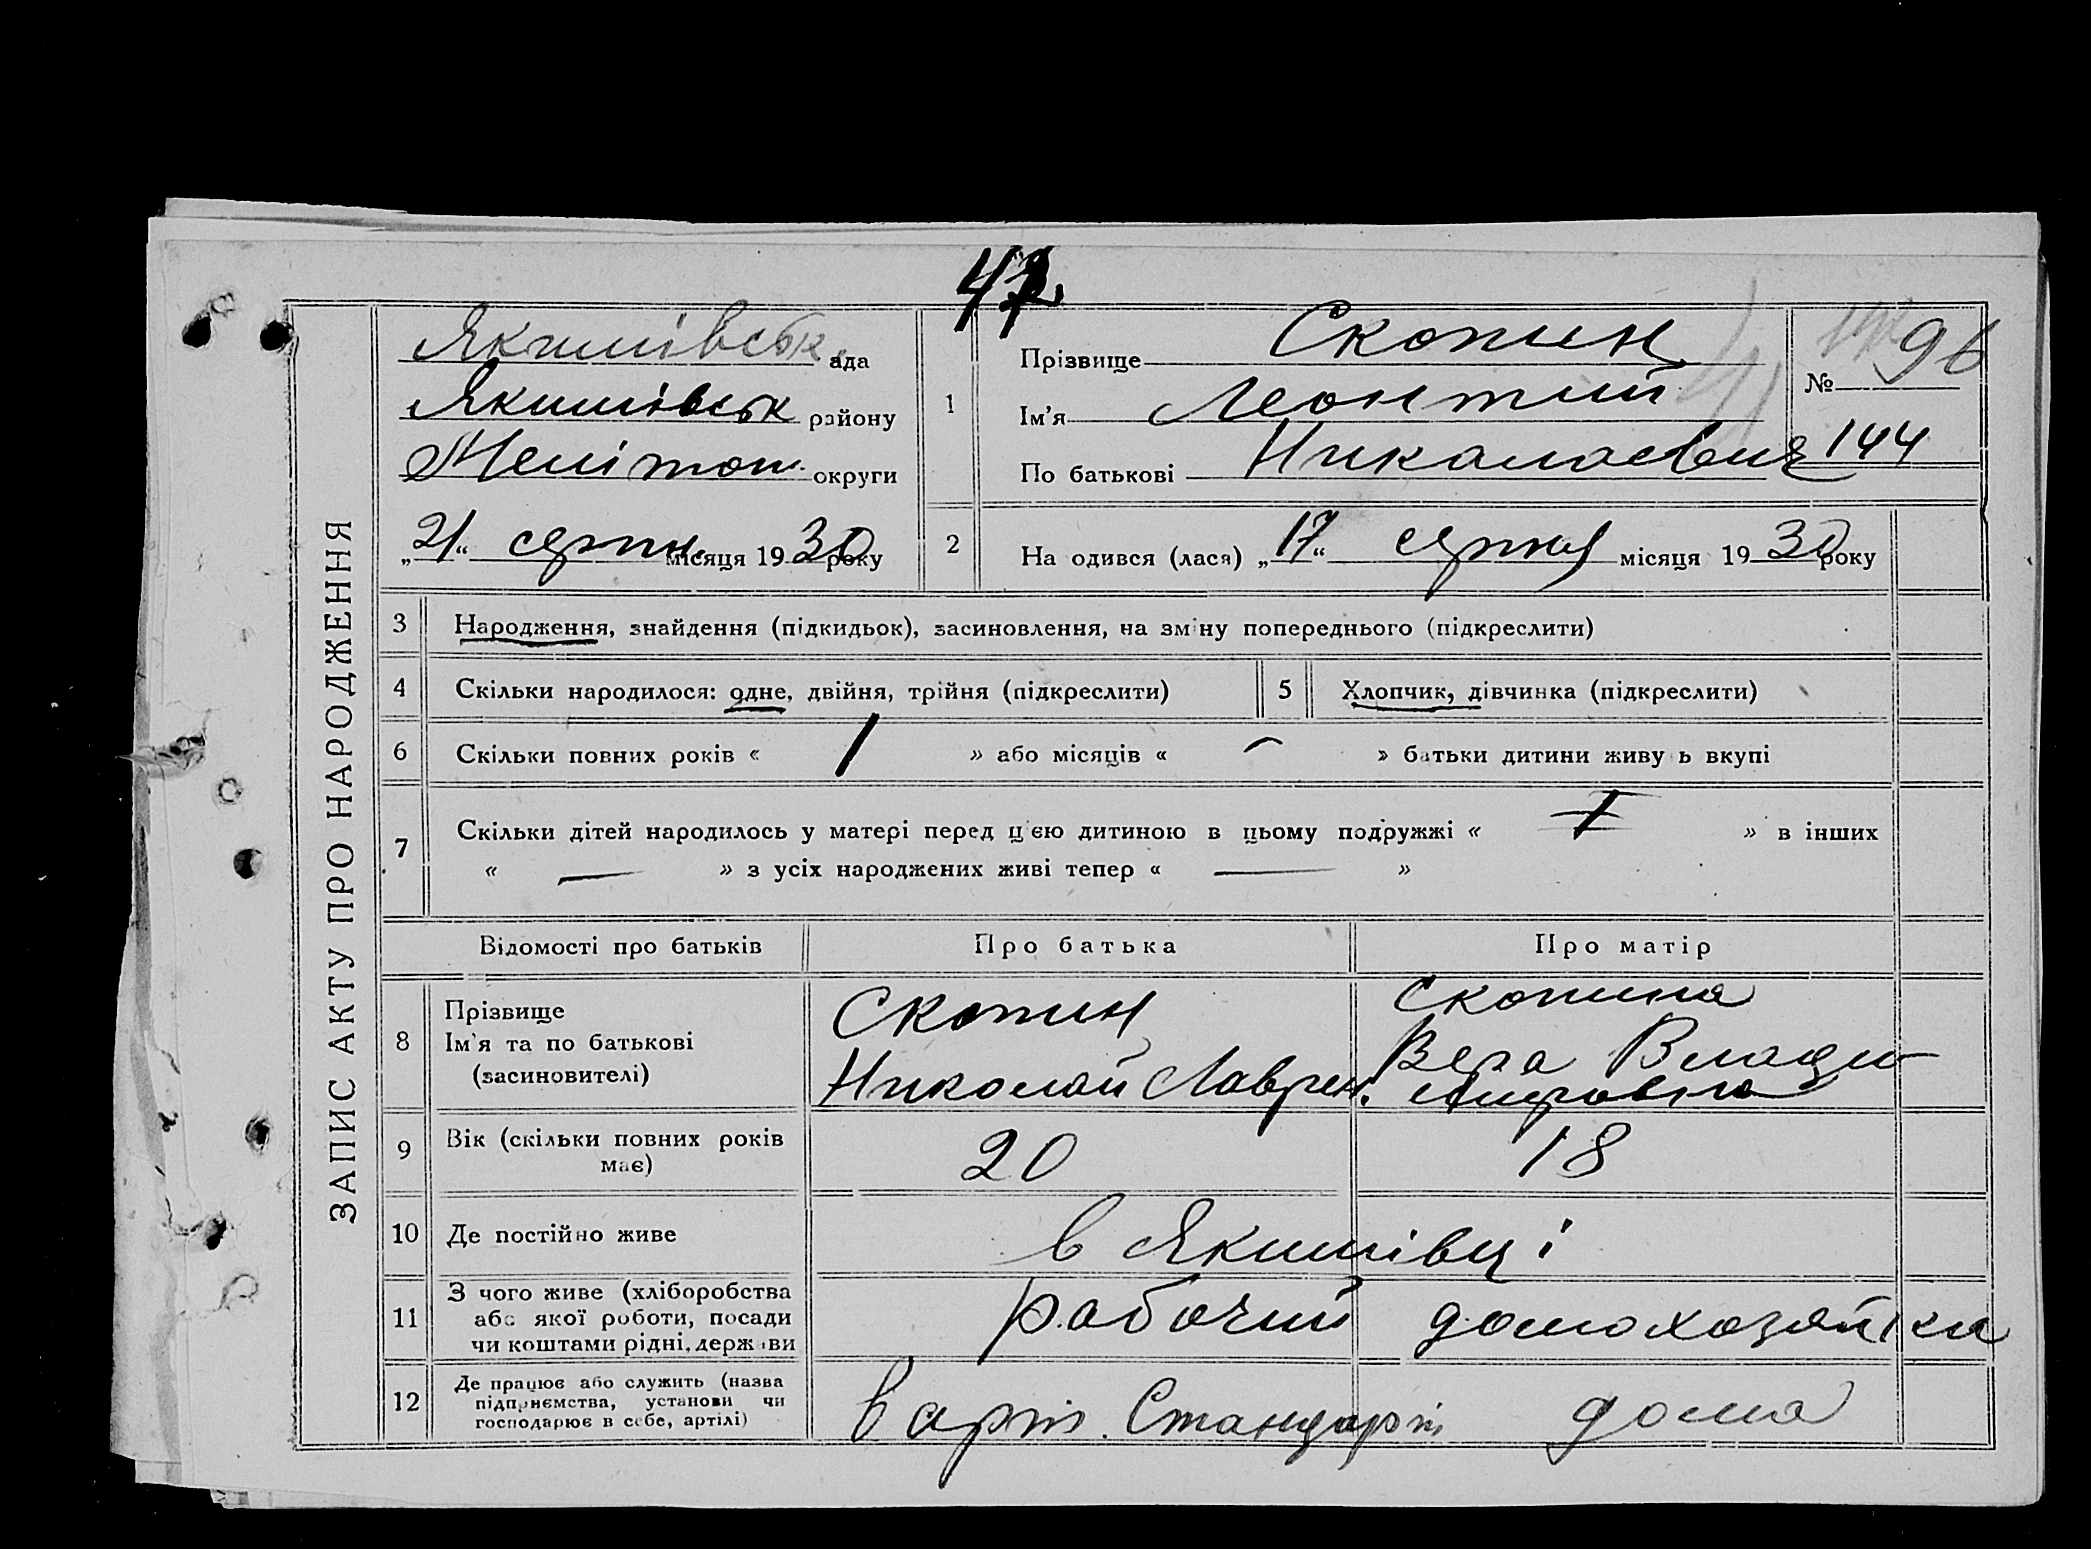 47
ЗАПИС АКТУ ПРО НАРОДЖЕННЯ
Якимівськ. ада
Якимівськ району
Меліտоп. округи
„21“ серпн. місяця 1930 року
1
Прізвище Скопин
Ім’я Леонтий
По батькові Никалаевич
№ 96
144
2
На одився (лася) „17“ серпня місяця 1930 року
3 Народження, знайдення (підкидьок), засиновлення, на зміну попереднього (підкреслити)
4 Скільки народилося: одне, двійня, трійня (підкреслити)
5 Хлопчик, дівчинка (підкреслити)
6 Скільки повних років « 1 » або місяців « — » батьки дитини живу ь вкупі
7 Скільки дітей народилось у матері перед цією дитиною в цьому подружжі « » в інших
« — » з усіх народжених живі тепер « — »
Відомості про батьків Про батька Про матір
8 Прізвище
Ім’я та по батькові
(засиновителі)
Скопин
Николай Лаврен.
Скопина
Вера Влади
мировна
9 Вік (скільки повних років
має)
20 18
10 Де постійно живе
в Якимівці
11 З чого живе (хліборобства
або якої роботи, посади
чи коштами рідні, держави
рабочий домохозяйка
12 Де працює або служить (назва
підприємства, установи чи
господарює в себе, артілі)
в арт. Стандарт дома